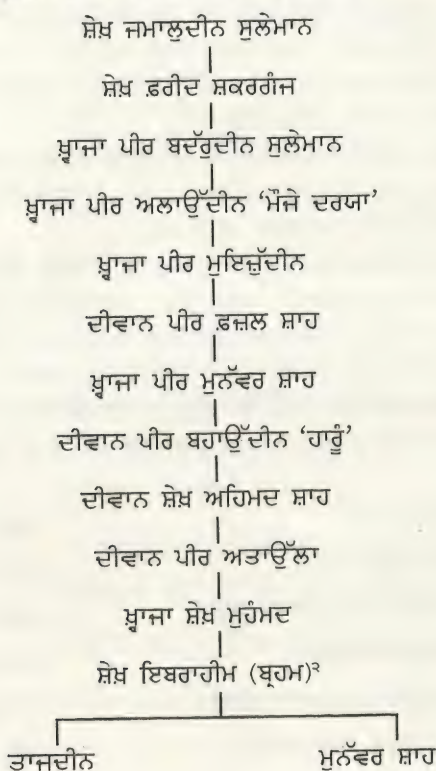 ਸ਼ੇਖ਼ ਜਮਾਲੁਦੀਨ ਸੁਲੇਮਾਨ
ਸ਼ੇਖ਼ ਫ਼ਰੀਦ ਸ਼ਕਰਗੰਜ
ਖ਼੍ਵਾਜਾ ਪੀਰ ਬਦੱਰੁਦੀਨ ਸੁਲੇਮਾਨ
ਖ਼੍ਵਾਜਾ ਪੀਰ ਅਲਾਉੱਦੀਨ ‘ਮੌਜੇ ਦਰਯਾ’
ਖ਼੍ਵਾਜਾ ਪੀਰ ਮੁਇਜ਼ੁੱਦੀਨ
ਦੀਵਾਨ ਪੀਰ ਫ਼ਜ਼ਲ ਸ਼ਾਹ
ਖ਼੍ਵਾਜਾ ਪੀਰ ਮੁਨੱਵਰ ਸ਼ਾਹ
ਦੀਵਾਨ ਪੀਰ ਬਹਾਉੱਦੀਨ ‘ਹਾਰੂੰ’
ਦੀਵਾਨ ਸ਼ੇਖ਼ ਅਹਿਮਦ ਸ਼ਾਹ
ਦੀਵਾਨ ਪੀਰ ਅਤਾਉੱਲਾ
ਖ਼੍ਵਾਜਾ ਸ਼ੇਖ਼ ਮੁਹੰਮਦ
ਸ਼ੇਖ਼ ਇਬਰਾਹੀਮ (ਬ੍ਰਹਮ)²
ਤਾਜਦੀਨ ਮੁਨੱਵਰ ਸ਼ਾਹ